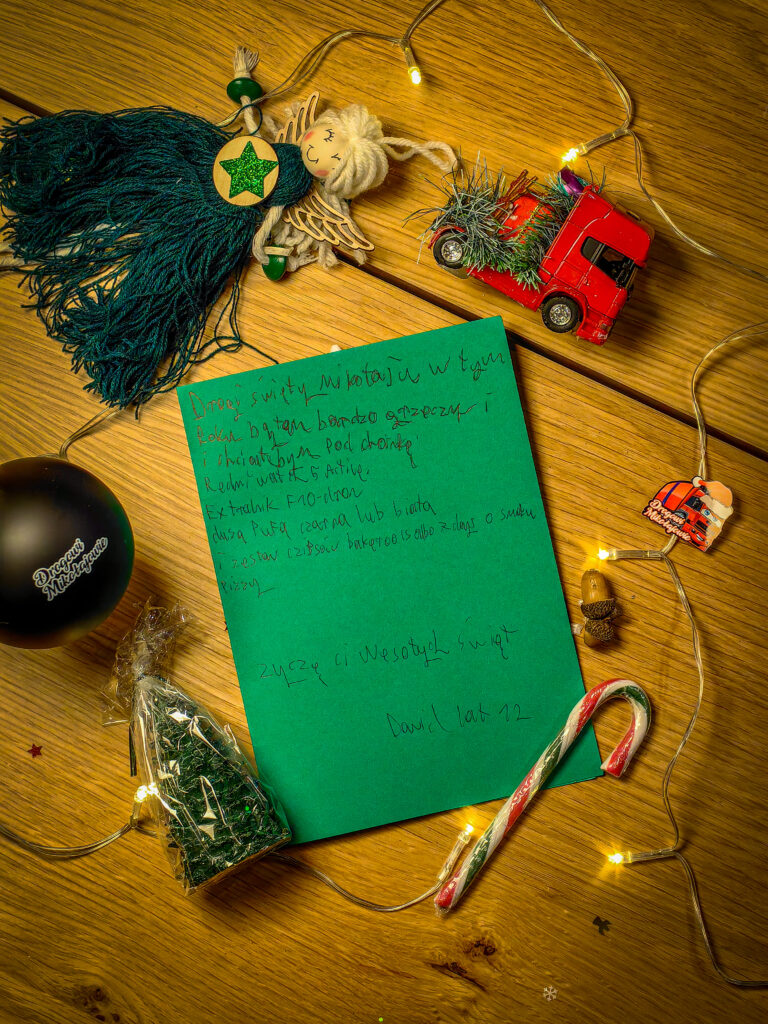 Drogi święty Mikołaju w tym
Roku byłem bardzo grzeczny i
i chciałbym Pod choinkę:
Redmi watch 5 Active.
Extralink F10-dron
dużą Pufą czarna lub biała
i zestaw czipsów bake rools albo 7 days o smaku
Pizzy
życzę ci Wesołych świąt
Dawid lat 12
Drogowi
Mikołajowie
Drogowi
Mikołajowie